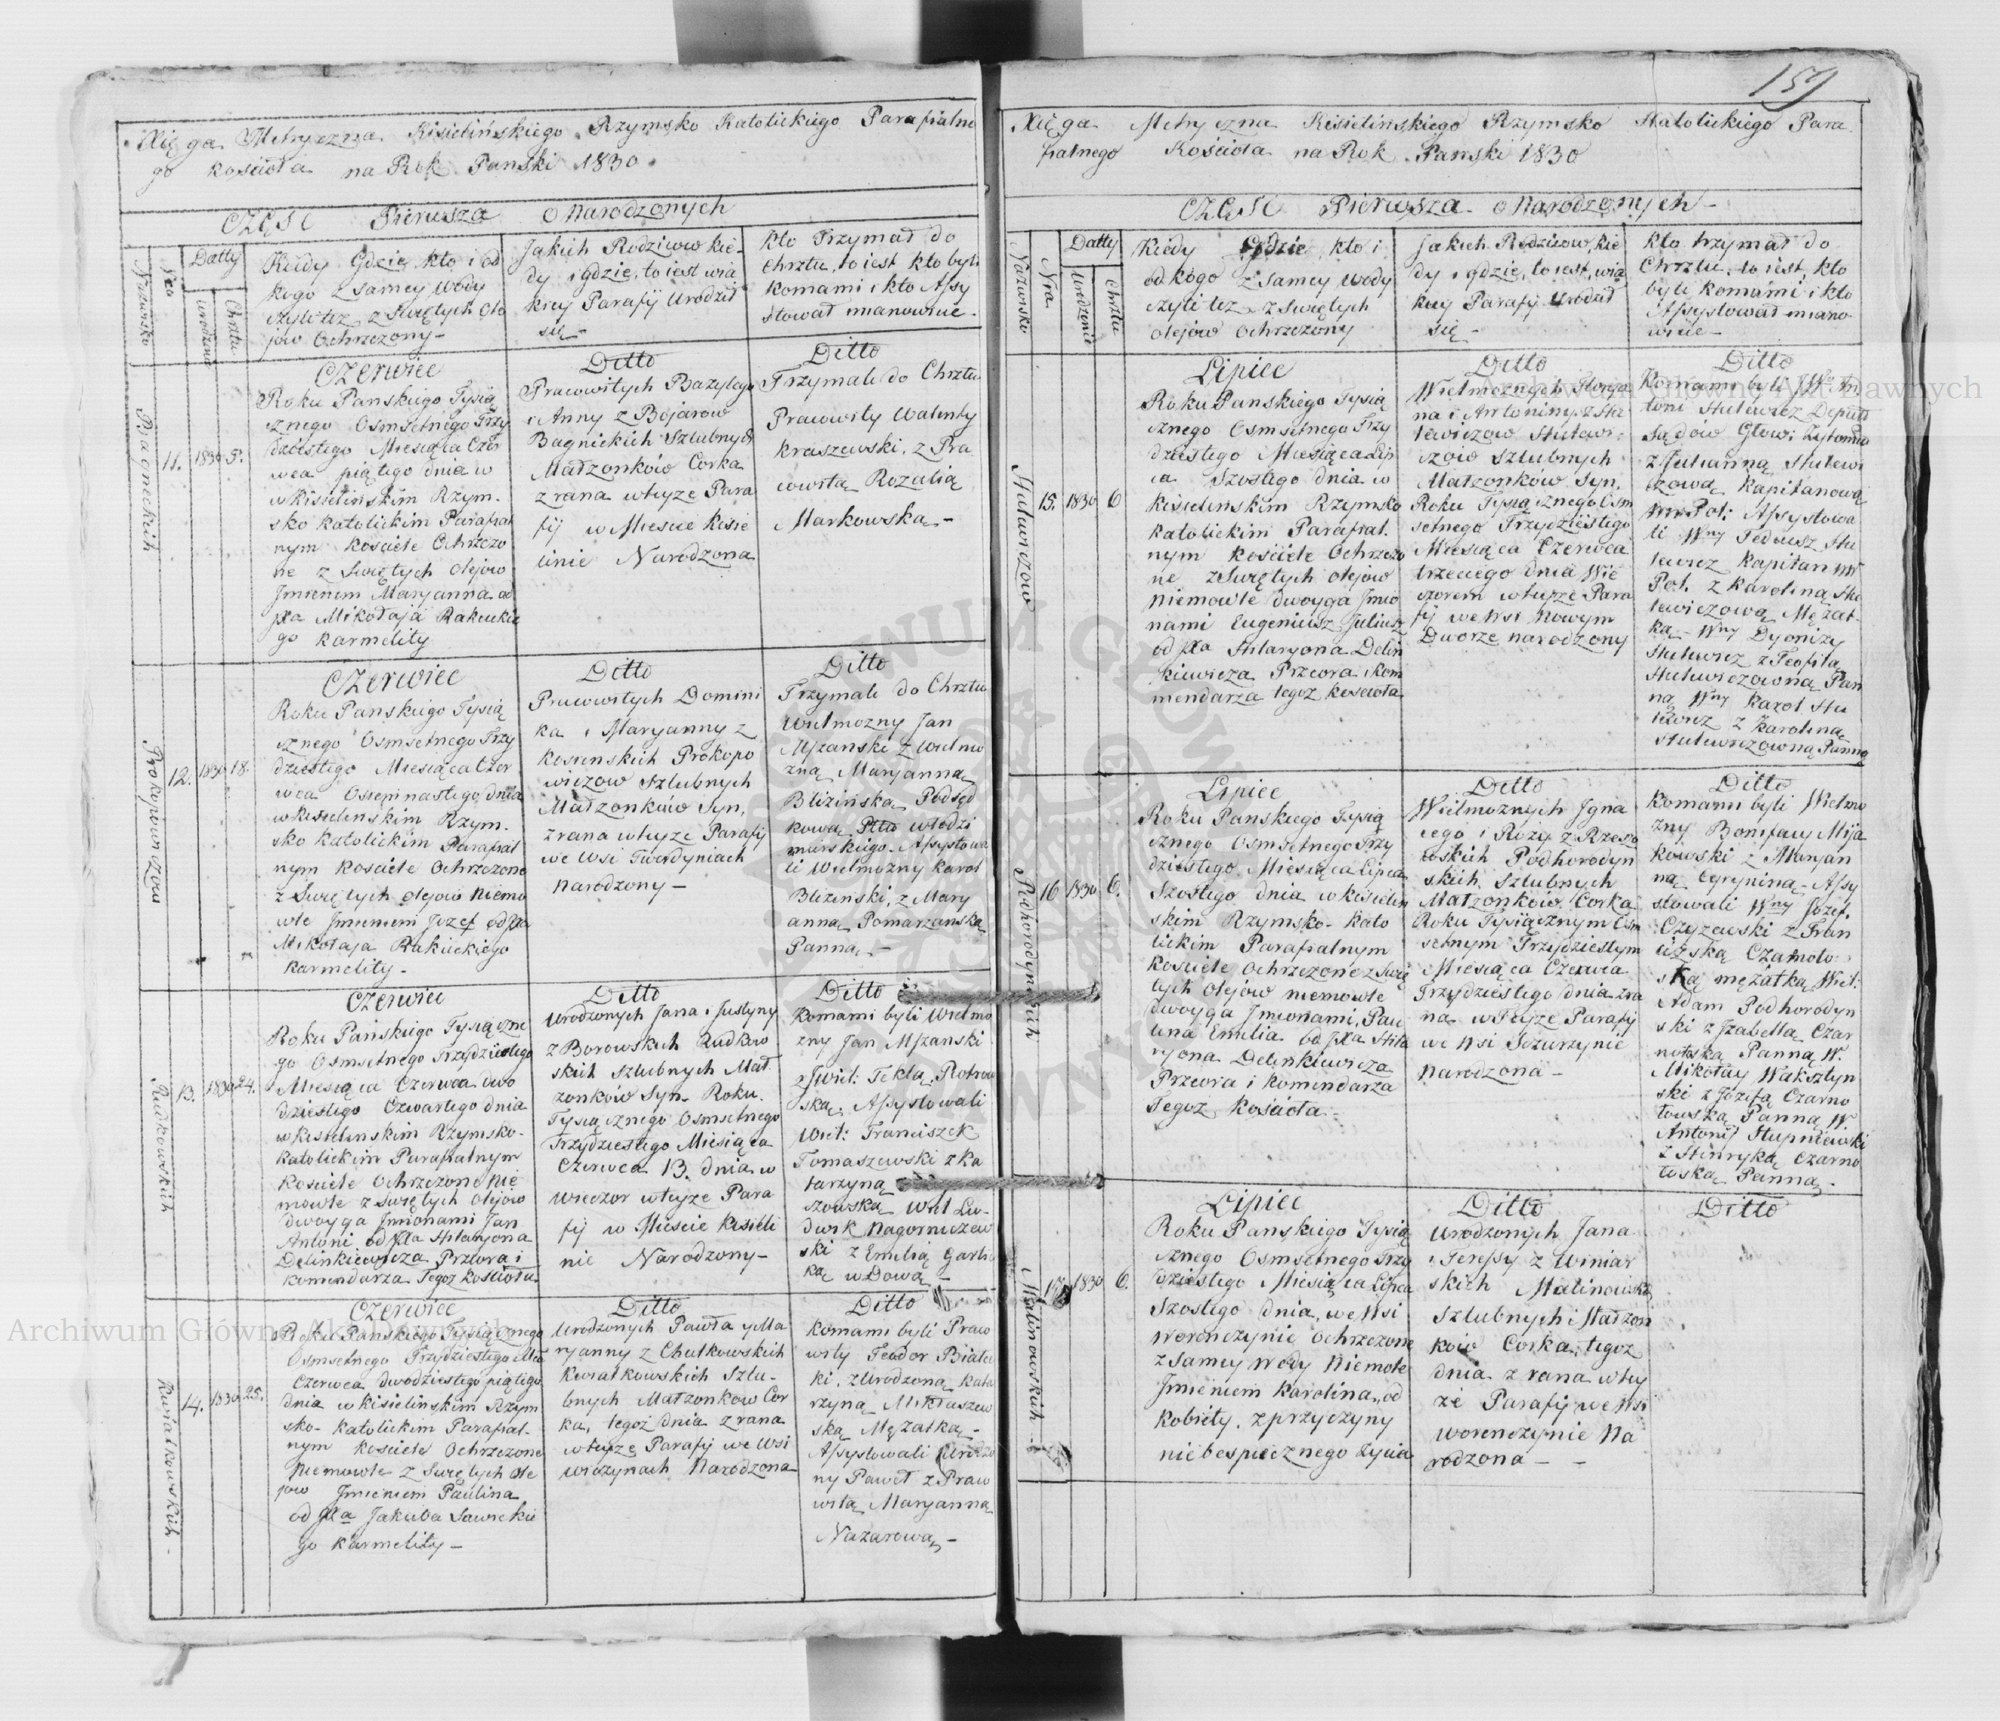 159
Xięga Metryczna Kisielińskiego Rzymsko Katolickiego Parafialne
go kościoła na Rok Panski 1830.
CZĘSC Pierwsza o Narodzonych
Nazwisko
Nro
Datty
urodzenia
Chrztu
Kiedy Gdzie kto i od
kogo z samey Wody
czyli też z Swiętych Ole
jow Ochrzczony
Jakich Rodzicow kie-
dy i gdzie, to iest w ia
kiey Parafij Urodził
się
kto Trzymał do
Chrztu, to iest kto byli
komami i kto Assy
stował mianowicie.
11. 1830 5.
Czerwiec
Roku Panskiego Tysią
cznego Osmsetnego Trzy
dziestego Miesiąca Czer
wca piątego dnia w
w kisielińskim Rzym-
sko katolickim Parafial
nym kosciele Ochrzczo
ne z Swiętych olejow
Jmieniem Maryanna od
Xa Mikołaja Rakuckie
go karmelity
Ditto
Pracowitych Bazylego
i Anny z Bojarow
Bagnickich Szlubnych
Małzonków Corka
z rana w teyze Para
fij w Miescie Kisie
linie Narodzona
Ditto
Trzymali do Chrztu
Pracowity Walenty
kraszewski, z Pra
cowitą Rozalią
Markowską
Prokopowiczow
12. 1830 18.
Czerwiec
Roku Panskiego Tysią
cznego Osmsetnego Trzy
dziestego Miesiąca Czer
wca Osiemnastego dnia
w kisielinskim Rzym-
sko katolickim Parafial
nym kosciele Ochrzczone
z Swiętych olejow Niemo
wle Jmieniem Jozef od Xa
Mikołaja Rakuckiego
karmelity
Ditto
Pracowitych Domini
ka i Maryanny z
Prokopo
wiczow Szlubnych
Małzonków Syn,
z rana w teyze Parafij
we Wsi Twerdyniach
narodzony
Ditto
Trzymali do Chrztu
Wielmozny Jan
z Wielmo
zną Maryanną
Blizińską Podsęd
kową Ptu włodzi
mirskiego. Assystowa
li Wielmozny karol
Blizinski, z Mary
anną Pomarzanską
Panną
Rudkowskich
13. 1830 24.
Czerwiec
Roku Pańskiego Tysiączne
go Osmsetnego Trzydziestego
Miesiąca Czerwca dwo
dziestego Czwartego dnia
w kisielinskim Rzymsko-
katolickim Parafialnym
kosciele Ochrzczone Nie
mowle z Swiętych Olejow
dwoyga Jmionami Jan
Antoni od Xa Hilaryona
Delinkiewicza Przeora i
komendarza Tegoz kosciołu
Ditto
Urodzonych Jana i Justyny
z Borowskich Rudkow
skich Szlubnych Mał
zonków Syn. Roku
Tysiącznego Osmsetnego
Trzydziestego Miesiąca
Czerwca 13. dnia w
wieczor w teyze Para
fij w Miescie kisieli
nie Narodzony
Ditto
Komami byli Wielmo
zny Jan
z Wiel: Teklą
ską Assystowali
Wiel: Franciszek
Tomaszewski z ka
tarzyną
szowską Wiel Lu-
dwik Nagorniczew
ski z Emilią
ką wdową
Kwiatkowskich
14. 1830 25.
Czerwiec
Roku Panskiego Tysiącznego
Osmsetnego Trzydziestego Mca
Czerwca dwodziestego piątego
dnia w kisielinskim Rzym
sko- katolickim Parafial-
nym kosciele Ochrzczone
Niemowle z Swiętych ole
jow Jmieniem Paulina
od Xa Jakuba Sawickie
go karmelity
Ditto
Urodzonych Pawła y Ma
ryanny z Chutkowskich
kwiatkowskich Szlu-
bnych Małzonkow Cor
ka, tegoz dnia z rana
w teyze Parafij we Wsi
Narodzona
Ditto
komami byli Praw
wity Teodor Białec
ki, z Urodzoną kata
rzyną Mikłaszew
ską Męzatką
Assystowali Urodzo
ny Paweł z Praw
witą Maryanną
Nazarową
Xięga Metryczna Kisielińskiego Rzymsko Katolickiego Para
fialnego Kościoła na Rok Panski 1830
CZĘSC Pierwsza o Narodzonych
Nazwisko
Nra
Datty
urodzenia
chrztu
Kiedy Gdzie, kto i
od kogo z Samey Wody
czyli tez z Swiętych
olejow Ochrzczony
Jakich Rodzicow, kie
dy i gdzie, to iest, w ia
kiey Parafij Urodził
się
kto trzymał do
Chrztu, to iest, kto
byli komami i kto
Assystował miano-
wicie
Hulewiczow
15. 1830 6
Lipiec
Roku Panskiego Tysią
cznego Osmsetnego Trzy
dziestego Miesiąca Lip
ca Szostego dnia w
kisielinskim Rzymsko
katolickim Parafial.
nym kosciele Ochrzczo
ne z Swiętych olejow
Niemowle dwoyga Jmio
nami Eugeniusz Juliusz
od Xa Hilaryona Delin
kiewicza Przeora i kom
mendarza tegoz kosciola
Ditto
Wielmoznych
na i Antoniny z Hu
lewiczow Hulewi-
czow Szlubnych
Małzonków Syn.
Roku Tysiącznego Osm
setnego Trzydziestego
Miesiąca Czerwca
trzeciego dnia Wie
czorem w teyze Para
fij we Wsi Nowym
Dworze narodzony
Ditto
Komami byli Wny An
toni Hulewicz Deputt
Sądow Głow: Zytomir
z Julianną Hulewi
czową kapitanową
WPol: Assystowa
li Wny Tedeusz Hu
lewicz kapitan W
Pol. z karoliną Hu
lewiczową Męzat-
ką Wny Dyonizy
Hulewicz z Teofilą
Hulewiczowną Pan
ną Wny karol Hu
lewicz z karoliną
Hulewiczowną Panną
Podhorodynskich
16 1830 6.
Lipiec
Roku Panskiego Tysią
cznego Osmsetnego Trzy
dziestego Miesiąca Lipca
Szostego dnia w kisielin
skim Rzymsko- kato
lickim Parafialnym
kosciele Ochrzczone z Swię
tych Olejow niemowle
dwoyga Jmionami, Pau
lina Emilia od Xa Hila
ryona Delinkiewicza
Przeora i komendarza
Tegoz kościoła
Ditto
Wielmoznych Jgna
cego i Rozy z Rzeszo
wskich Podhorodyn
skich Szlubnych
Małzonków, Corka
Roku Tysiącznym Osm
setnym Trzydziestym
Miesiąca Czerwca
Trzydziestego dnia z ra
na w Teyze Parafij
we Wsi
narodzona
Ditto
komami byli Wielmo
zny Bonifacy Mija
kowski z Maryan
ną Assy
stowali Wny Józef
Czyzewski z Fran
ciszką
ską męzatką Wiel:
Adam Podhorodyn
ski z Jzabellą Czar
notoską Panną W.
Mikołay
ski z Józefą Czarno
towską Panną W.
Antonij Stupniewski
z Hinryką Czarno
toską Panną
Malinowskich
17 1830 6.
Lipiec
Roku Panskiego Tysią
cznego Osmsetnego Trzy
dziestego Miesiąca Lipca
Szostego dnia, we Wsi
Worończynie Ochrzczone
z Samey Wody Niemole
Jmieniem karolina, od
kobiety, z przyczyny
niebespiecznego życia
Ditto
Urodzonych Jana
i Teressy z Winiar
skich Malinowskich
Szlubnych Małzon
ków Corka, tegoz
dnia z rana w tey
że Parafij we Wsi
Worończynie Na
rodzona
Ditto
Archiwum Główne Akt Dawnych
Archiwum Główne Akt Dawnych